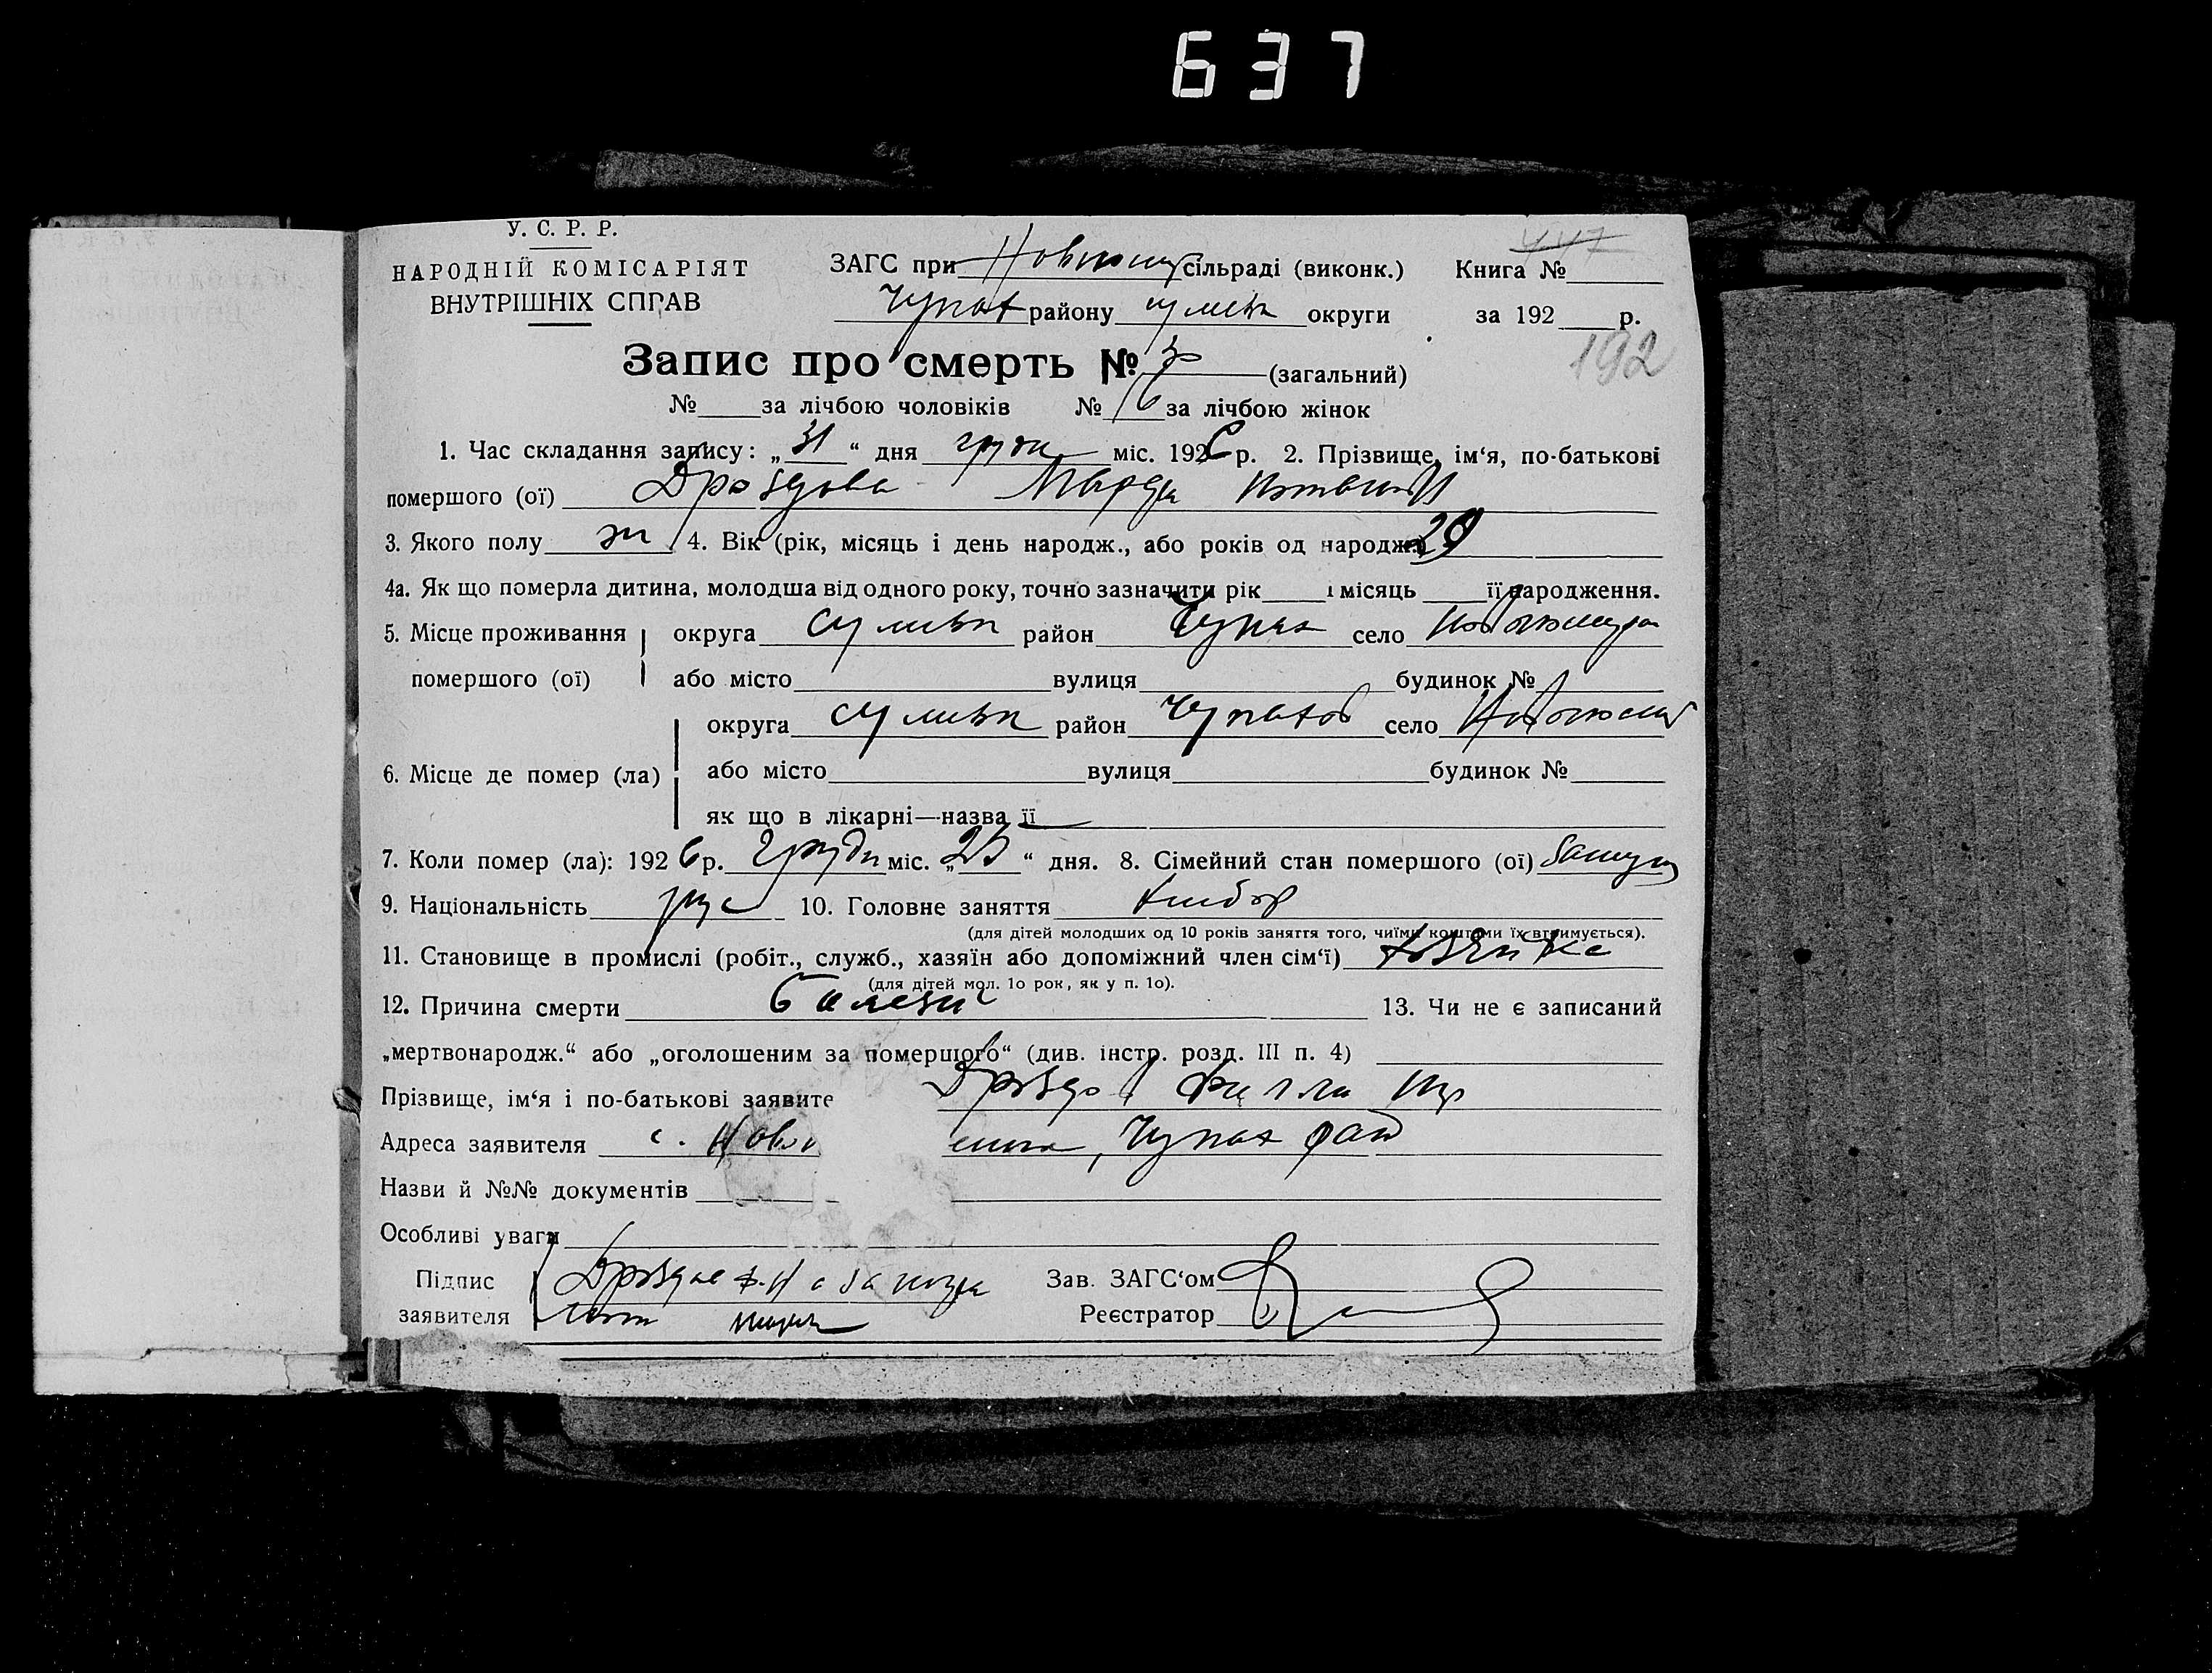 637
У. С. Р. Р.
НАРОДНІЙ КОМІСАРІЯТ
ВНУТРІШНІХ СПРАВ
ЗАГС при сільраді (виконк.) Книга №
447
Чупах району сумськ округи за 192 р.
192
Запис про смерть № 30 (загальний)
№ за лічбою чоловіків № 16 за лічбою жінок
1. Час складання запису: „31“ дня грудн міс. 1926 р. 2. Прізвище, ім‘я, по-батькові
помершого (ої) Дроздова
3. Якого полу жи 4. Вік (рік, місяць і день народж., або років од народж.) 29
4а. Як що померла дитина, молодша від одного року, точно зазначити рік і місяць її народження.
5. Місце проживання округа сумськ район Чупах село
помершого (ої) або місто вулиця будинок №
округа сумськ район Чупахов село
6. Місце де помер (ла) або місто вулиця будинок №
як що в лікарні—назва її
7. Коли помер (ла): 1926 р. грудн міс. „25“ дня. 8. Сімейний стан помершого (ої) замуж
9. Національність рус 10. Головне заняття хлібор
(для дітей молодших од 10 років заняття того, чиїми коштами їх втримується).
11. Становище в промислі (робіт., служб., хазяїн або допоміжний член сім‘ї) хозяйка
(для дітей мол. 1о рок, як у п. 1о).
12. Причина смерти болезні 13. Чи не є записаний
„мертвонародж.“ або „оголошеним за помершого“ (див. інстр. розд. III п. 4)
Прізвище, ім‘я і по-батькові заявите Дроздов
Адреса заявителя с. Ново , Чупах рай
Назви й №№ документів
Особливі уваги
Підпис
заявителя
Зав. ЗАГС‘ом
Реєстратор